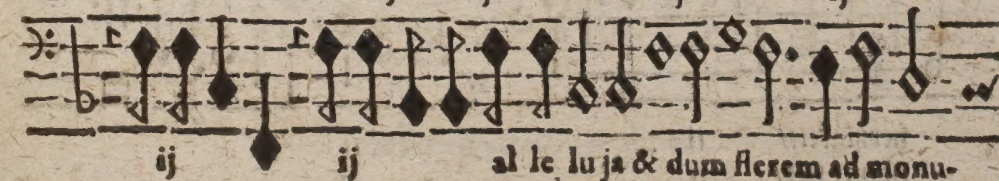 ij ij al le lu ja & dum flerem ad monu-